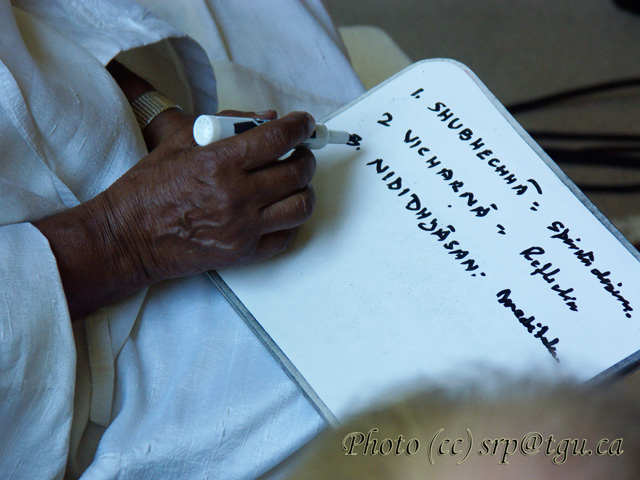 1. SHUBHECHHĀ = Spiritual desire.
2 VICHARṆĀ = Reflection
3. NIDIDHYĀSAN: meditation
Photo (cc) srp@tgu.ca